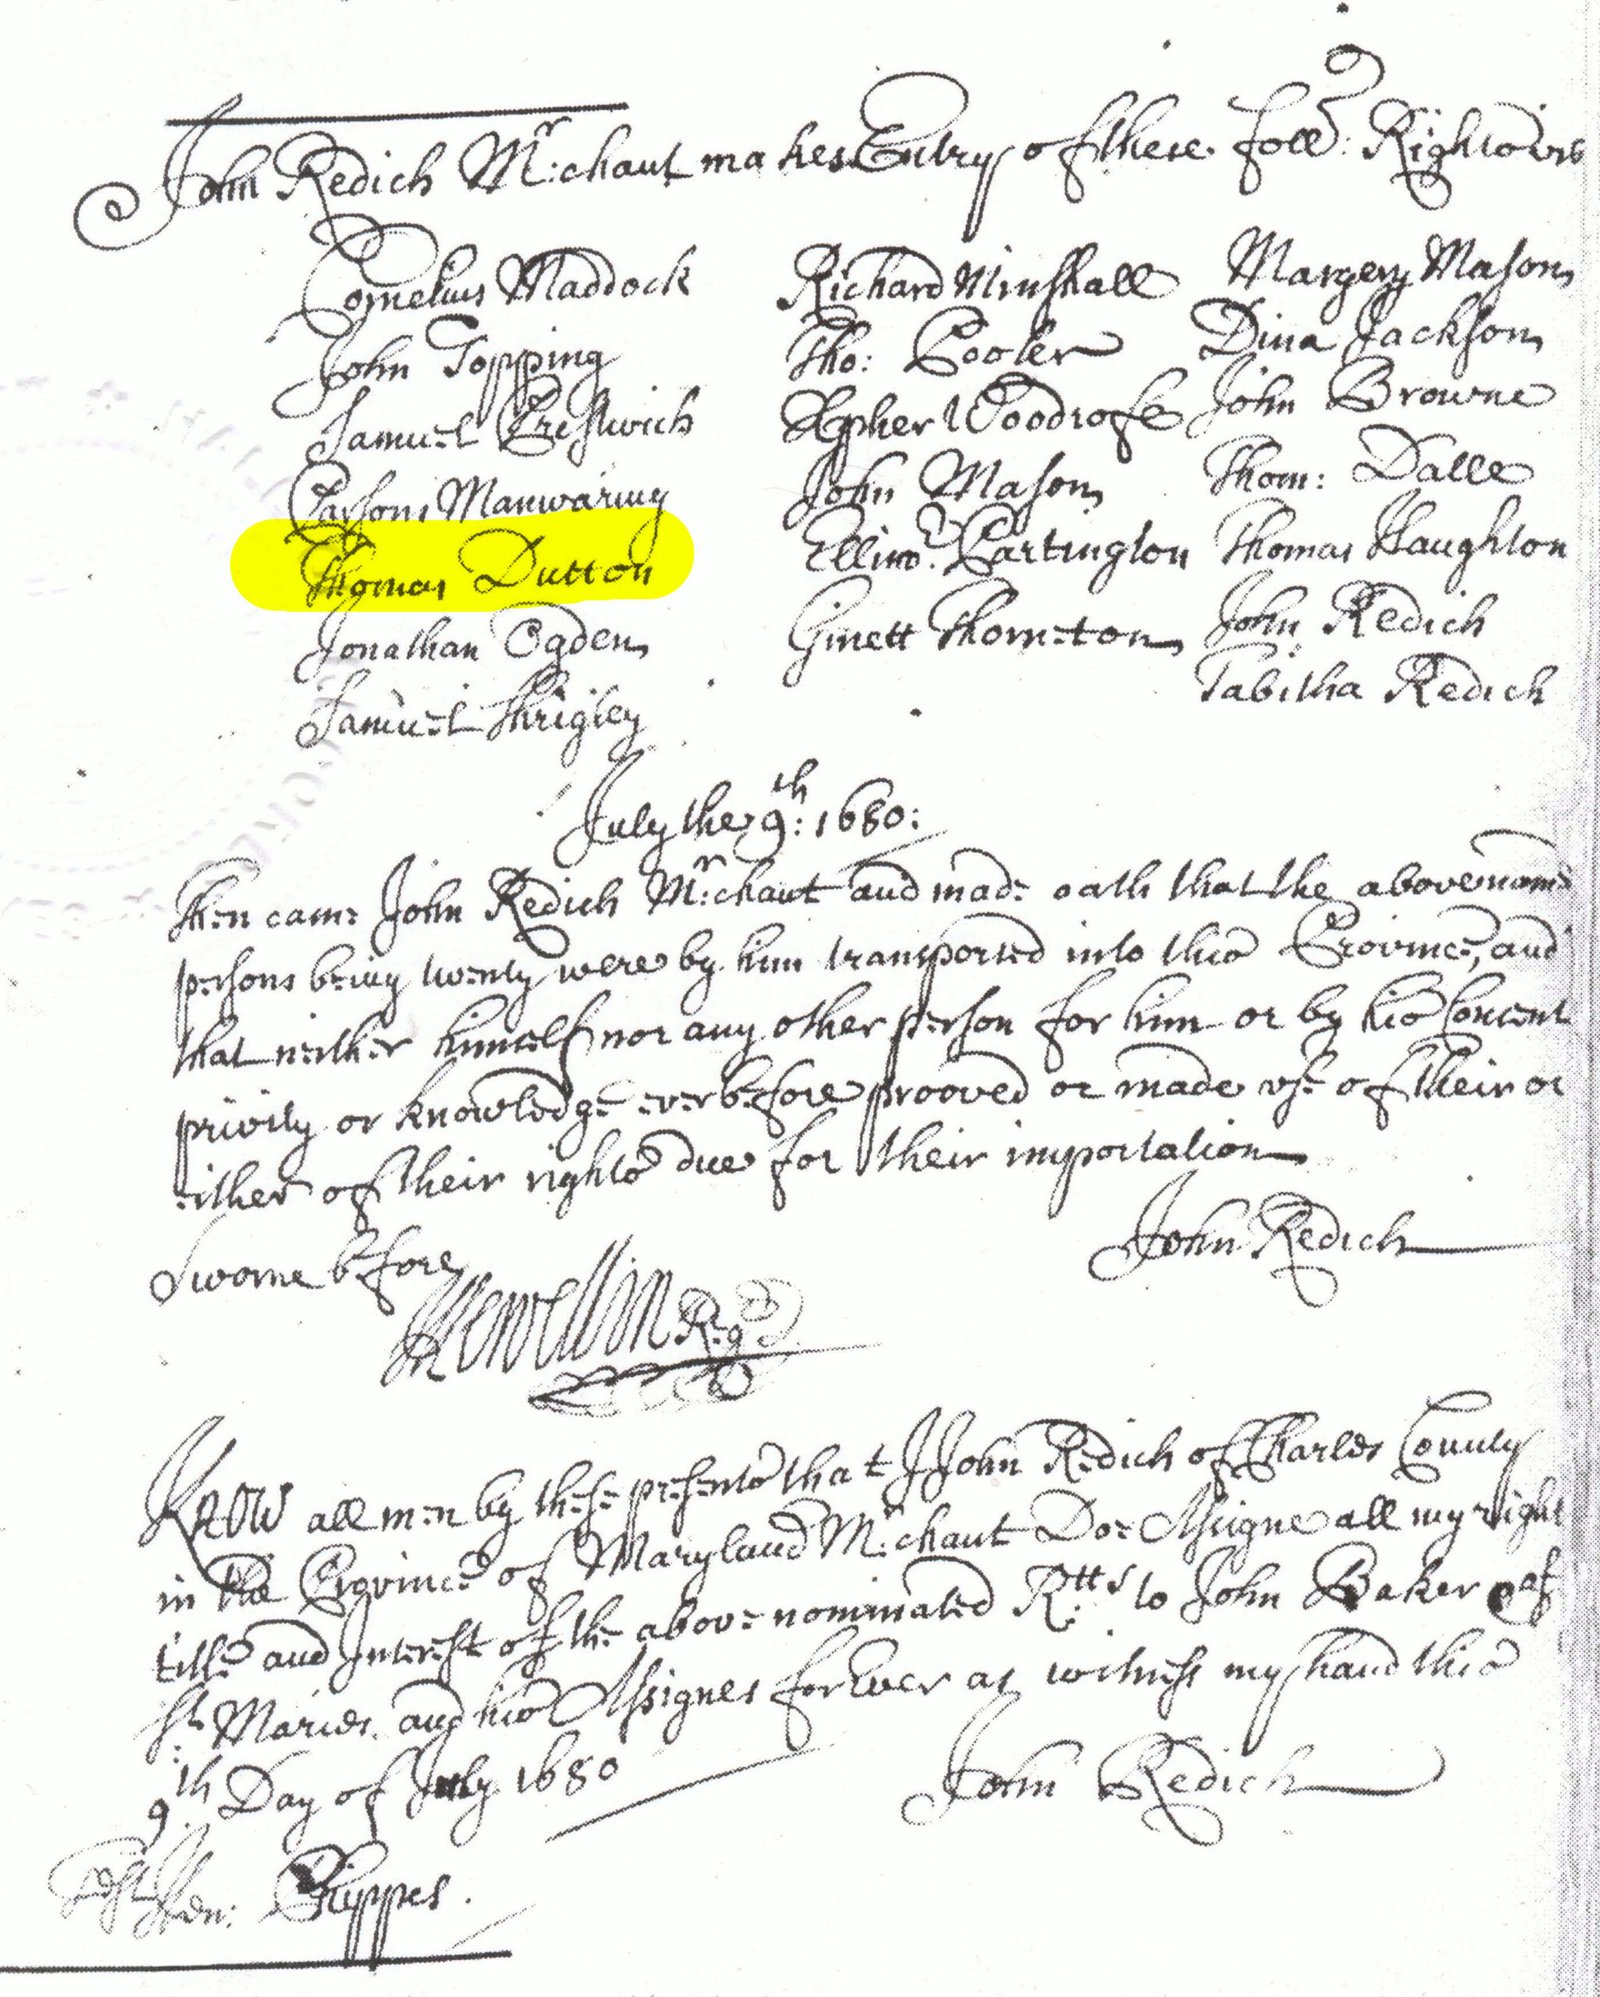 John Redich Mr:chant makes Entry of these foll: Rights vis
Cornelius Maddock
John Topping
Samuel Prestwich
Parsons Manwaring
Thomas Dutton
Jonathan Ogden
Samuel Shrigley
Richard Minshall
Tho: Cooler
Xpher Woodrofe
John Mason
Ellino:r Partington
Ginett Thornton
Margery Mason
Dina Jackson
John Browne
Thom: Dalle
Thomas Haughton
John Redich
Tabitha Redich
July the 9th: 1680:
Then came John Redich Mr:chant and made oath that the abovenamed
persons being twenty were by him transported into this Province, and
that neither himself nor any other person for him or by his Consent
privity or knowledge ever before prooved or made use of their or
either of their rights due for their importation
John Redich
Sworne before
Llewellin Reg
Know all men by these presents that I John Redich of Charles County
in the Province of Maryland Mr:chant Doe Assigne all my right
title and Interest of the above nominated R:tts to John Baker of
St: Maries and his Assignes for Ever as witness my hand this
9th: Day of July 1680
John Redich
Test Phippes.